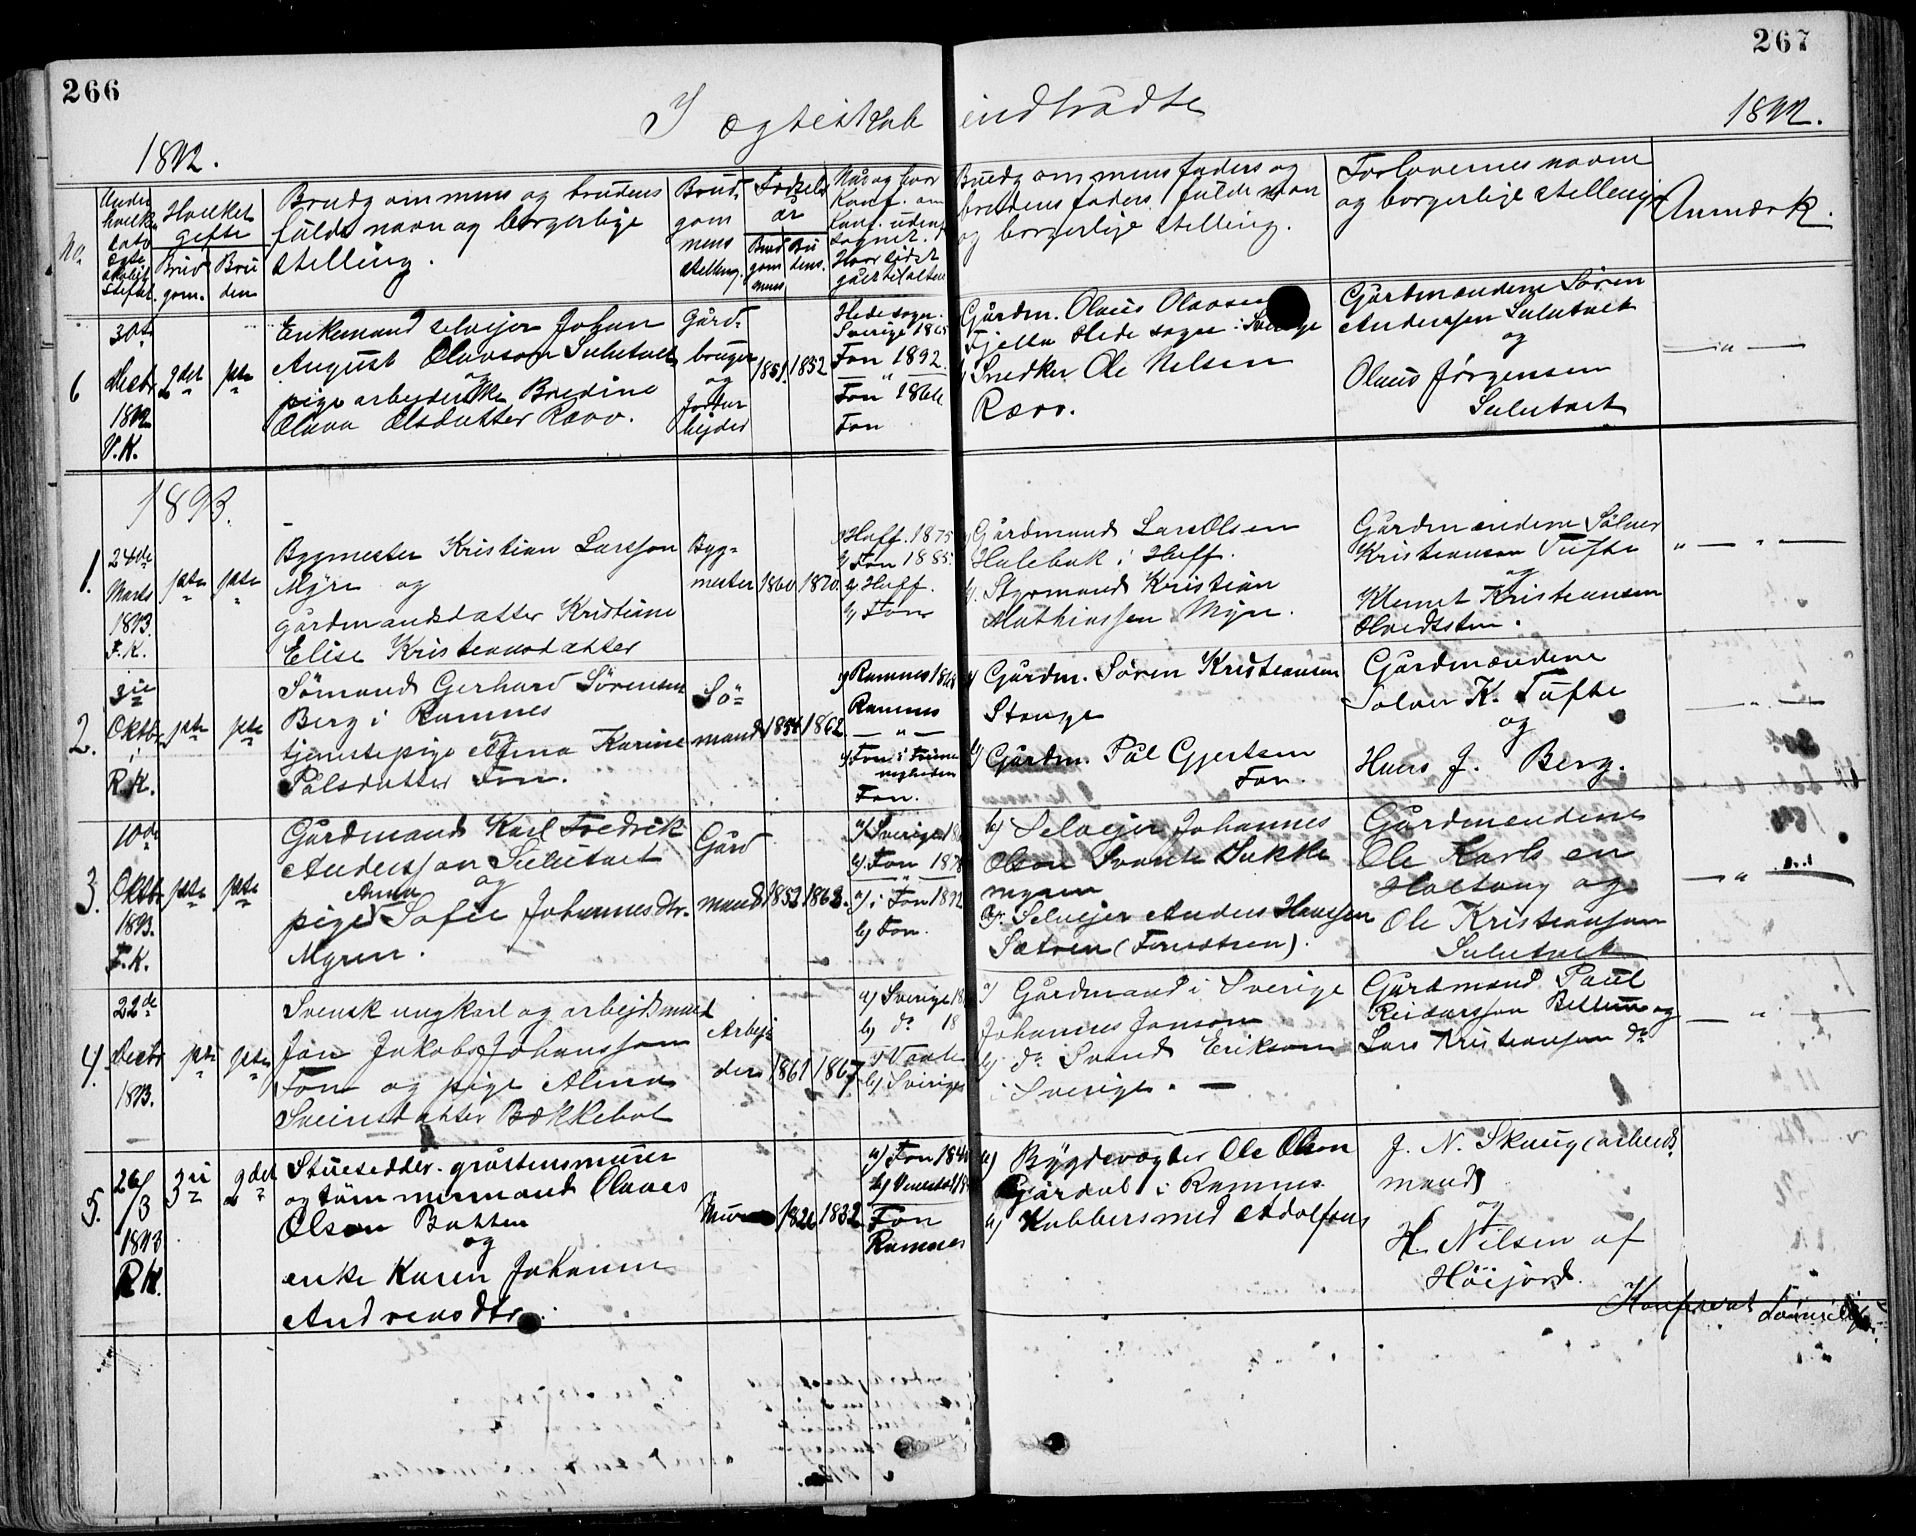 266
267
I ægteskab indtrådte
1892.
1892.
No.
Under
hvilken
dato
ægte
skabet
stiftet.
Hvilket
gifte
Brud
gom.
Bru
den
Brudgommens og brudens
fulde navn og borgerlige
stilling.
Brud,
gom
mens
stilling.
Fødsels
år
Brud
gom
mens
Bru
dens.
Når og hvor
Konf. om
Konf. udenf
sognet.
Hvor sidst
gået til alters
Brudgommens faders og
brudens faders fulde navn
og borgerlige stilling.
Forlovernes navne
og borgerlige stilling.
Anmærk.
6
30te
Decbr
1892
V.K.
2det
1ste
Enkemand selvejer Johan
August Olavson Sulutvet
og
pige arbejderske Bredine
Olava Olsdatter Ravo.
Gård-
bruger
og
jordar
bejder
1851.
1852
Hede sogn.
Sverige 1865
Fon 1892.
Fon 1866
Fon
Gårdm. Olaus Olavsen
Fjella Hede sogn i Sverige
Snedker Ole Nelsen
Rævo.
Gårdmændene Søren
Andersen Sulutvet
og
Olaus Jørgensen
Sulutvet
— „ —
1893.
1.
24de
Marts
1893.
F.K.
1ste
1ste
Bygmester Kristian Larsson
Myre og
gårdmandsdatter Kristiane
Elise Kristiansdatter
Byg-
mester
1860
1870.
Hoff. 1875
Fon 1885.
Hoff.
Fon
Gårdmand Lars Olsen
Holebak i Hoff.
Styrmand Kristian
Mathiassen Myre.
Gårdmændene Sølver
Kristiansen Tufte
og
Klemet Kristiansen
Hvidsten.
„ — „ —
2.
3ie
Oktbr
R.K.
1ste
1ste
Sømand Gerhard Sørensen
Berg i Ramnes
tjenestepige Anna Karine
Pålsdatter Fon.
Sø-
mand
1854
1862.
Ramnes 1868
Ramnes
— „ —
Fon i Frime-
nigheden
Fon.
Gårdm. Søren Kristiansen
Stange
Gårdm. Pål Gjertsen
Fon.
Gårdmændene
Sølver K. Tufte
og
Hans J. Berg.
— „ —
3.
10de
Oktbr
1893.
F.K.
1ste
1ste
Gårdmand Karl Fredrik
Andersson Sulutvet
og
Anna
pige Sofie Johannesdtr.
Myren.
Gård
mand
1852
1862.
a) Sverige
b) Fon 1878
a) i Fon 1892
b) Fon.
b) Selvejer Johannes
Olson Svante Sukke
myren
a) Selvejer Anders Hansen
Sætren (Fonsætren).
Gårdmændene
Ole Karlsen
Holtung og
Ole Kristiansen
Sulutvet
— „ —
4.
22de
Decbr
1893.
1ste
1ste
Svensk ungkarl og arbejdsmand
Jon Jakobs Johansson
Fon og pige Alma
Sveinsdatter Bækkebol
Arbej-
der
1861
1867.
a) Sverige 18
b) do 18
a) Vaale
b) Sverige
a) Gårdmand i Sverige
Johannes Jonson
b) do Svend Erikson
i Sverige. —
Gårdmand Paul
Reidarsson Bettum og
Lars Kristiansen do
— „ —
5.
26/
/3
1893
R.K.
3ie
2det
Stuesedder. gråstensmurer
og tømmermand Olaves
Olson Bakken
og
enke Karen Johanne
Andreasdtr.
Murer
1826
1832
a) Fon 1841
b)
Fon
Ramnes
a) Bygdevogter Ole Olson
Gjærdal i Ramnes
b) Kobbersmed Adolfsen
J. N. Skaug (arbeids
mand)
og
H. Nilsen af
Høijord.
Konfereret